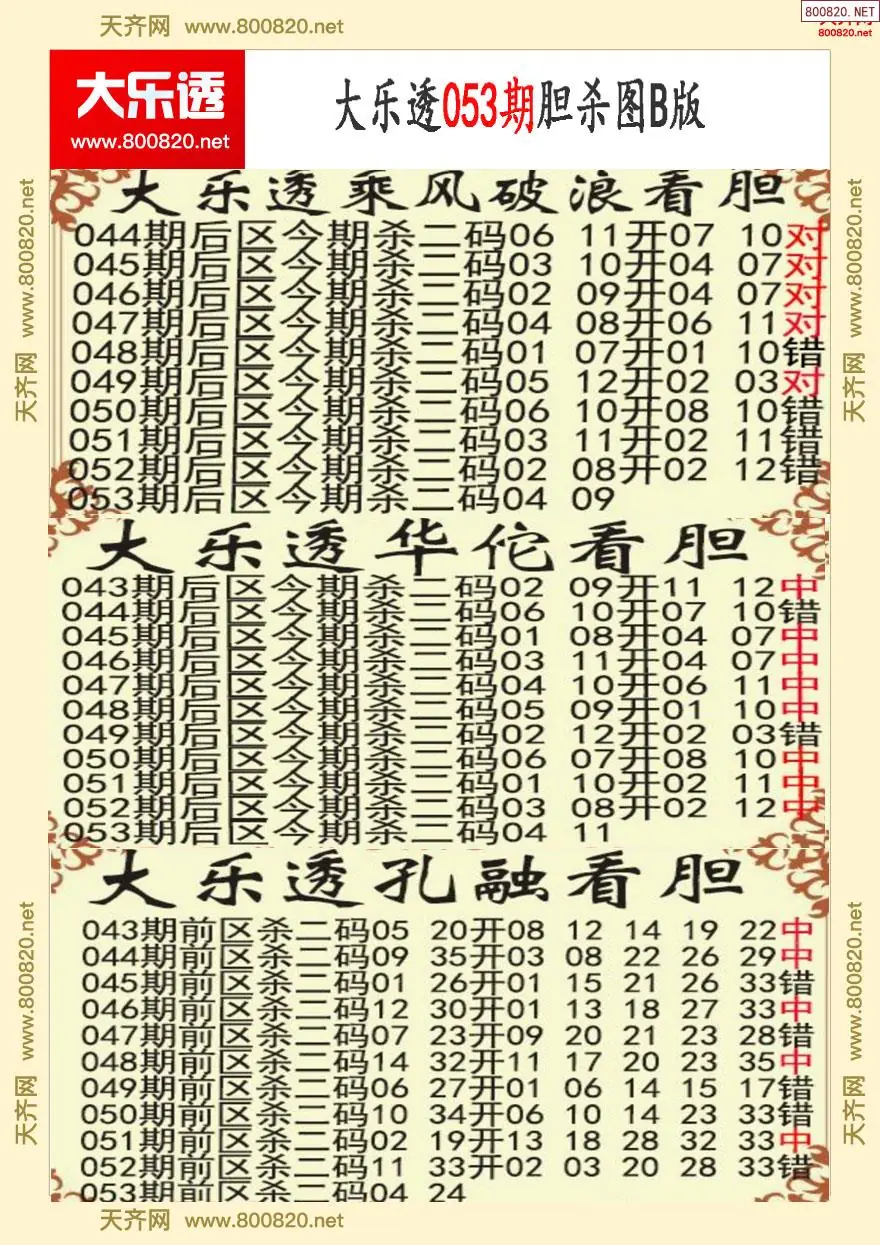 天齐网 www.800820.net
800820.NET
800820.net
大乐透
www.800820.net
大乐透053期胆杀图B版
大乐透乘风破浪看胆
044期后区今期杀二码06 11开07 10对
045期后区今期杀二码03 10开04 07对
046期后区今期杀二码02 09开04 07对
047期后区今期杀二码04 08开06 11对
048期后区今期杀二码01 07开01 10错
049期后区今期杀二码05 12开02 03对
050期后区今期杀二码06 10开08 10错
051期后区今期杀二码03 11开02 11错
052期后区今期杀二码02 08开02 12错
053期后区今期杀二码04 09
大乐透华佗看胆
043期后区今期杀二码02 09开11 12中
044期后区今期杀二码06 10开07 10错
045期后区今期杀二码01 08开04 07中
046期后区今期杀二码03 11开04 07中
047期后区今期杀二码04 10开06 11中
048期后区今期杀二码05 09开01 10中
049期后区今期杀二码02 12开02 03错
050期后区今期杀二码06 07开08 10中
051期后区今期杀二码01 10开02 11中
052期后区今期杀二码03 08开02 12中
053期后区今期杀二码04 11
大乐透孔融看胆
043期前区杀二码05 20开08 12 14 19 22中
044期前区杀二码09 35开03 08 22 26 29中
045期前区杀二码01 26开01 15 21 26 33错
046期前区杀二码12 30开01 13 18 27 33中
047期前区杀二码07 23开09 20 21 23 28错
048期前区杀二码14 32开11 17 20 23 35中
049期前区杀二码06 27开01 06 14 15 17错
050期前区杀二码10 34开06 10 14 23 33错
051期前区杀二码02 19开13 18 28 32 33中
052期前区杀二码11 33开02 03 20 28 33错
053期前区杀二码04 24
天齐网 www.800820.net
天齐网 www.800820.net
天齐网 www.800820.net
天齐网 www.800820.net
天齐网 www.800820.net
天齐网 www.800820.net